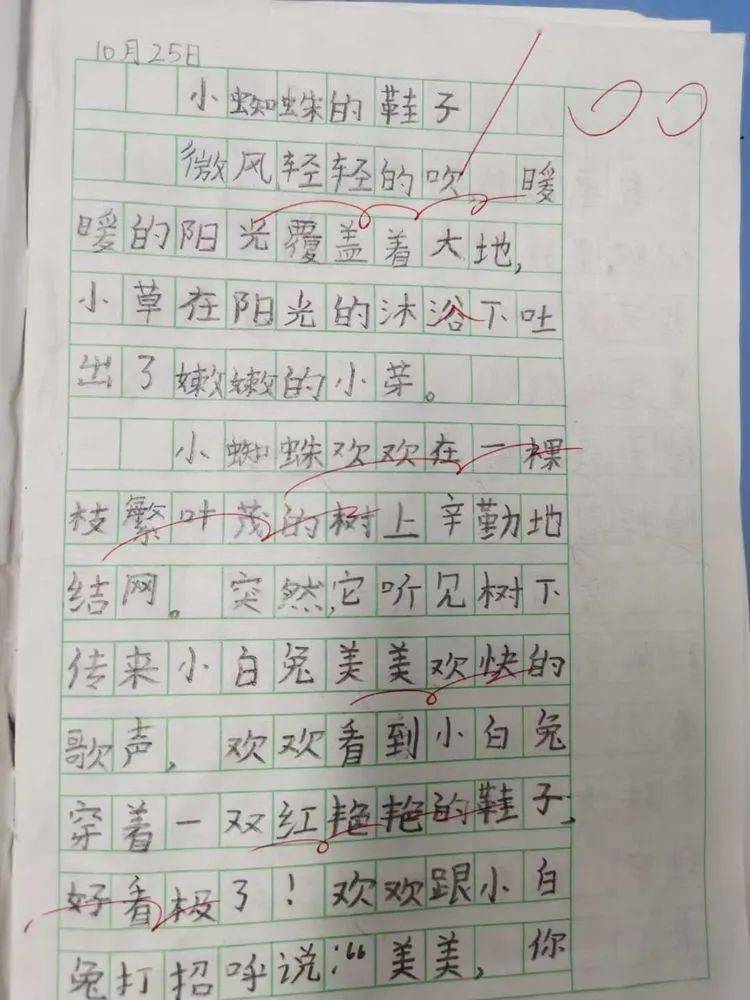 10月25日
小蜘蛛的鞋子
微风轻轻的吹，暖
暖的阳光覆盖着大地，
小草在阳光的沐浴下吐
出了嫩嫩的小芽。
小蜘蛛欢欢在一棵
枝繁叶茂的树上辛勤地
结网。突然，它听见树下
传来小白兔美美欢快的
歌声，欢欢看到小白兔
穿着一双红艳艳的鞋子，
好看极了！欢欢跟小白
兔打招呼说：“美美，你